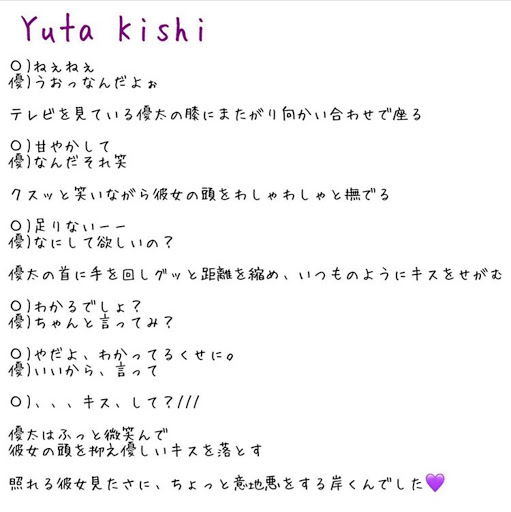 Yuta kishi
○)ねぇねぇ
優)うおっなんだよぉ
テレビを見ている優太の膝にまたがり向かい合わせで座る
○)甘やかして
優)なんだそれ笑
クスッと笑いながら彼女の頭をわしゃわしゃと撫でる
○)足りないーー
優)なにして欲しいの？
優太の首に手を回しグッと距離を縮め、いつものようにキスをせがむ
○)わかるでしょ？
優)ちゃんと言ってみ？
○)やだよ、わかってるくせに。
優)いいから、言って
○)、、、キス、して？///
優太はふっと微笑んで
彼女の頭を抑え優しいキスを落とす
照れる彼女見たさに、ちょっと意地悪をする岸くんでした💜